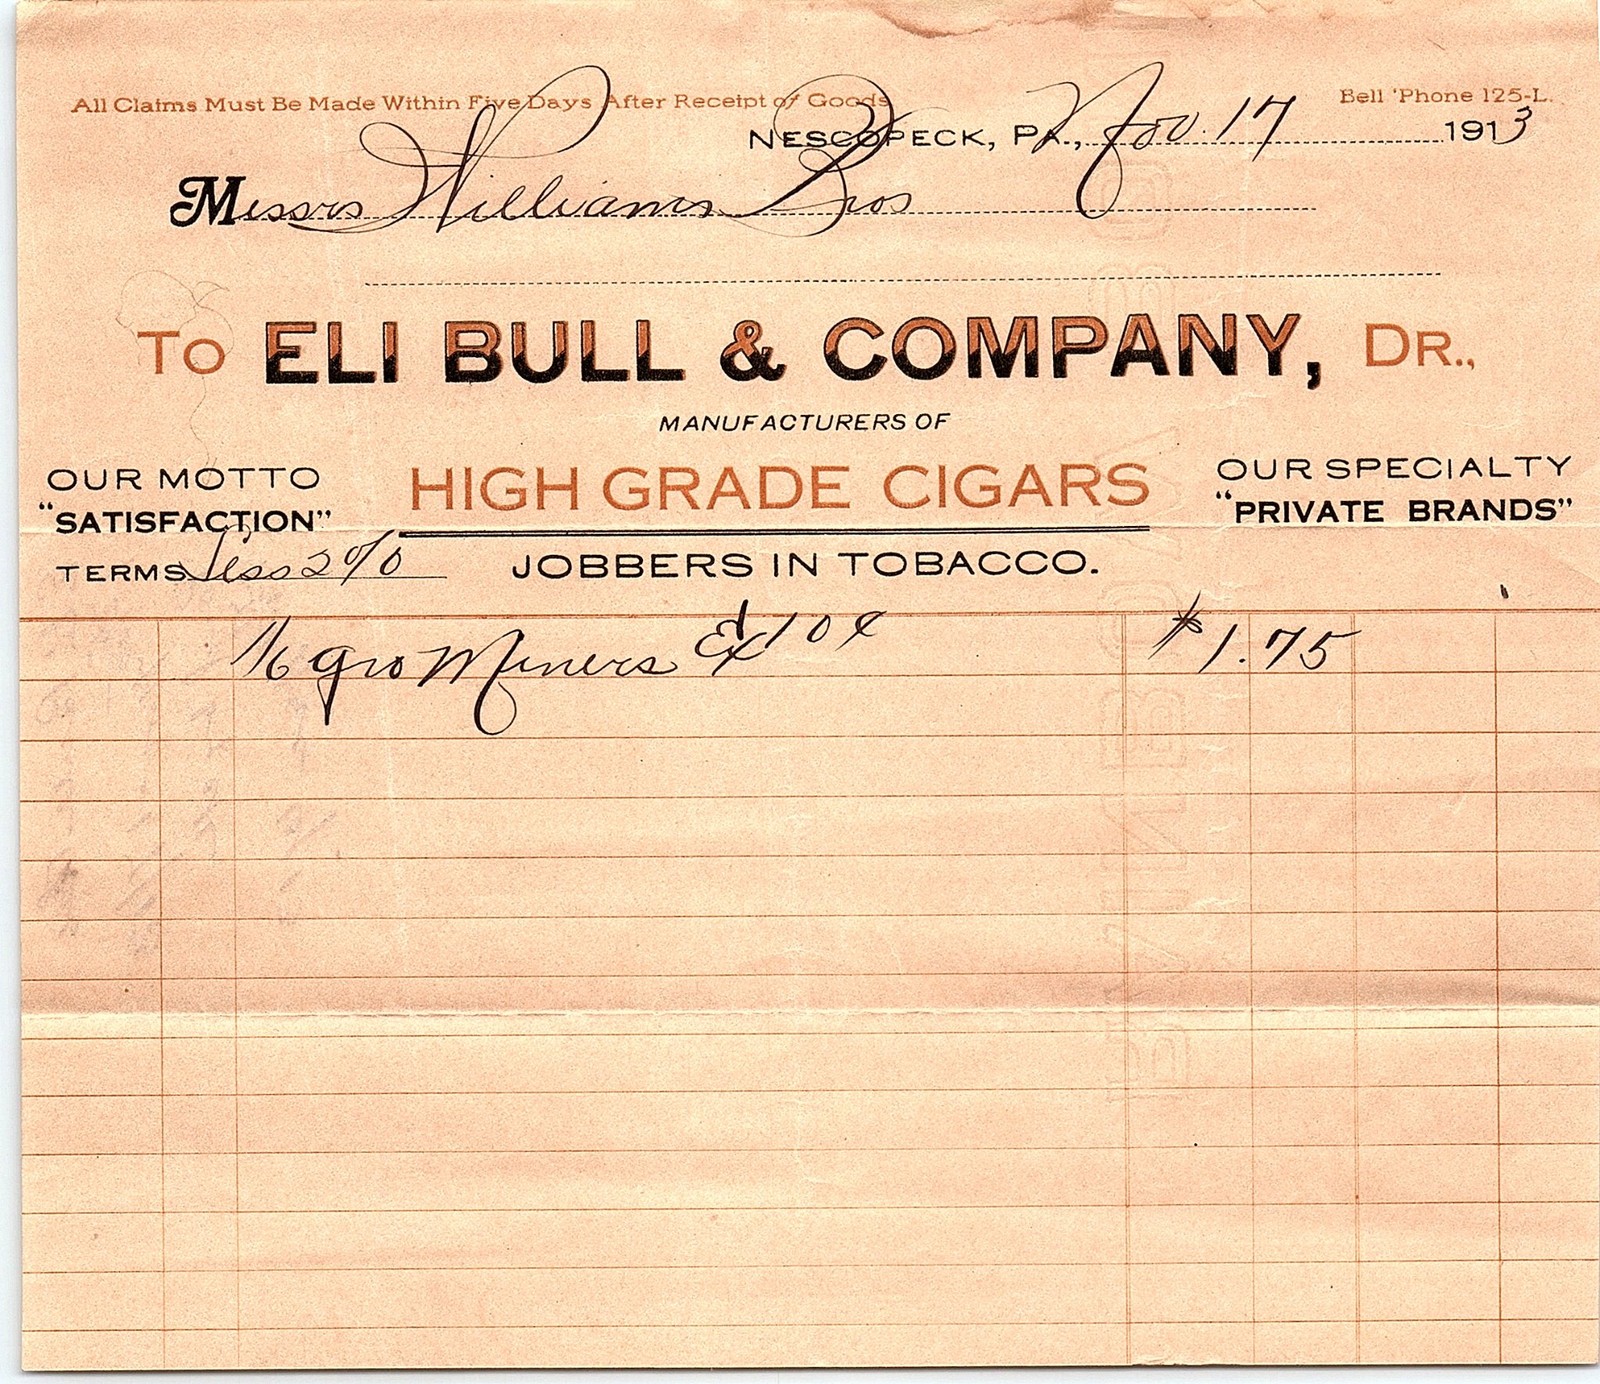 All Claims Must Be Made Within Five Days After Receipt of Goods
Bell 'Phone 125-L.
NESCOPECK, PA., Nov. 17 1913
Messrs Williams Bros
TO ELI BULL & COMPANY, DR.,
MANUFACTURERS OF
OUR MOTTO
"SATISFACTION"
HIGH GRADE CIGARS
OUR SPECIALTY
"PRIVATE BRANDS"
TERMS Less 2%
JOBBERS IN TOBACCO.
1/6 gro Miners Ex 10¢ $1.75